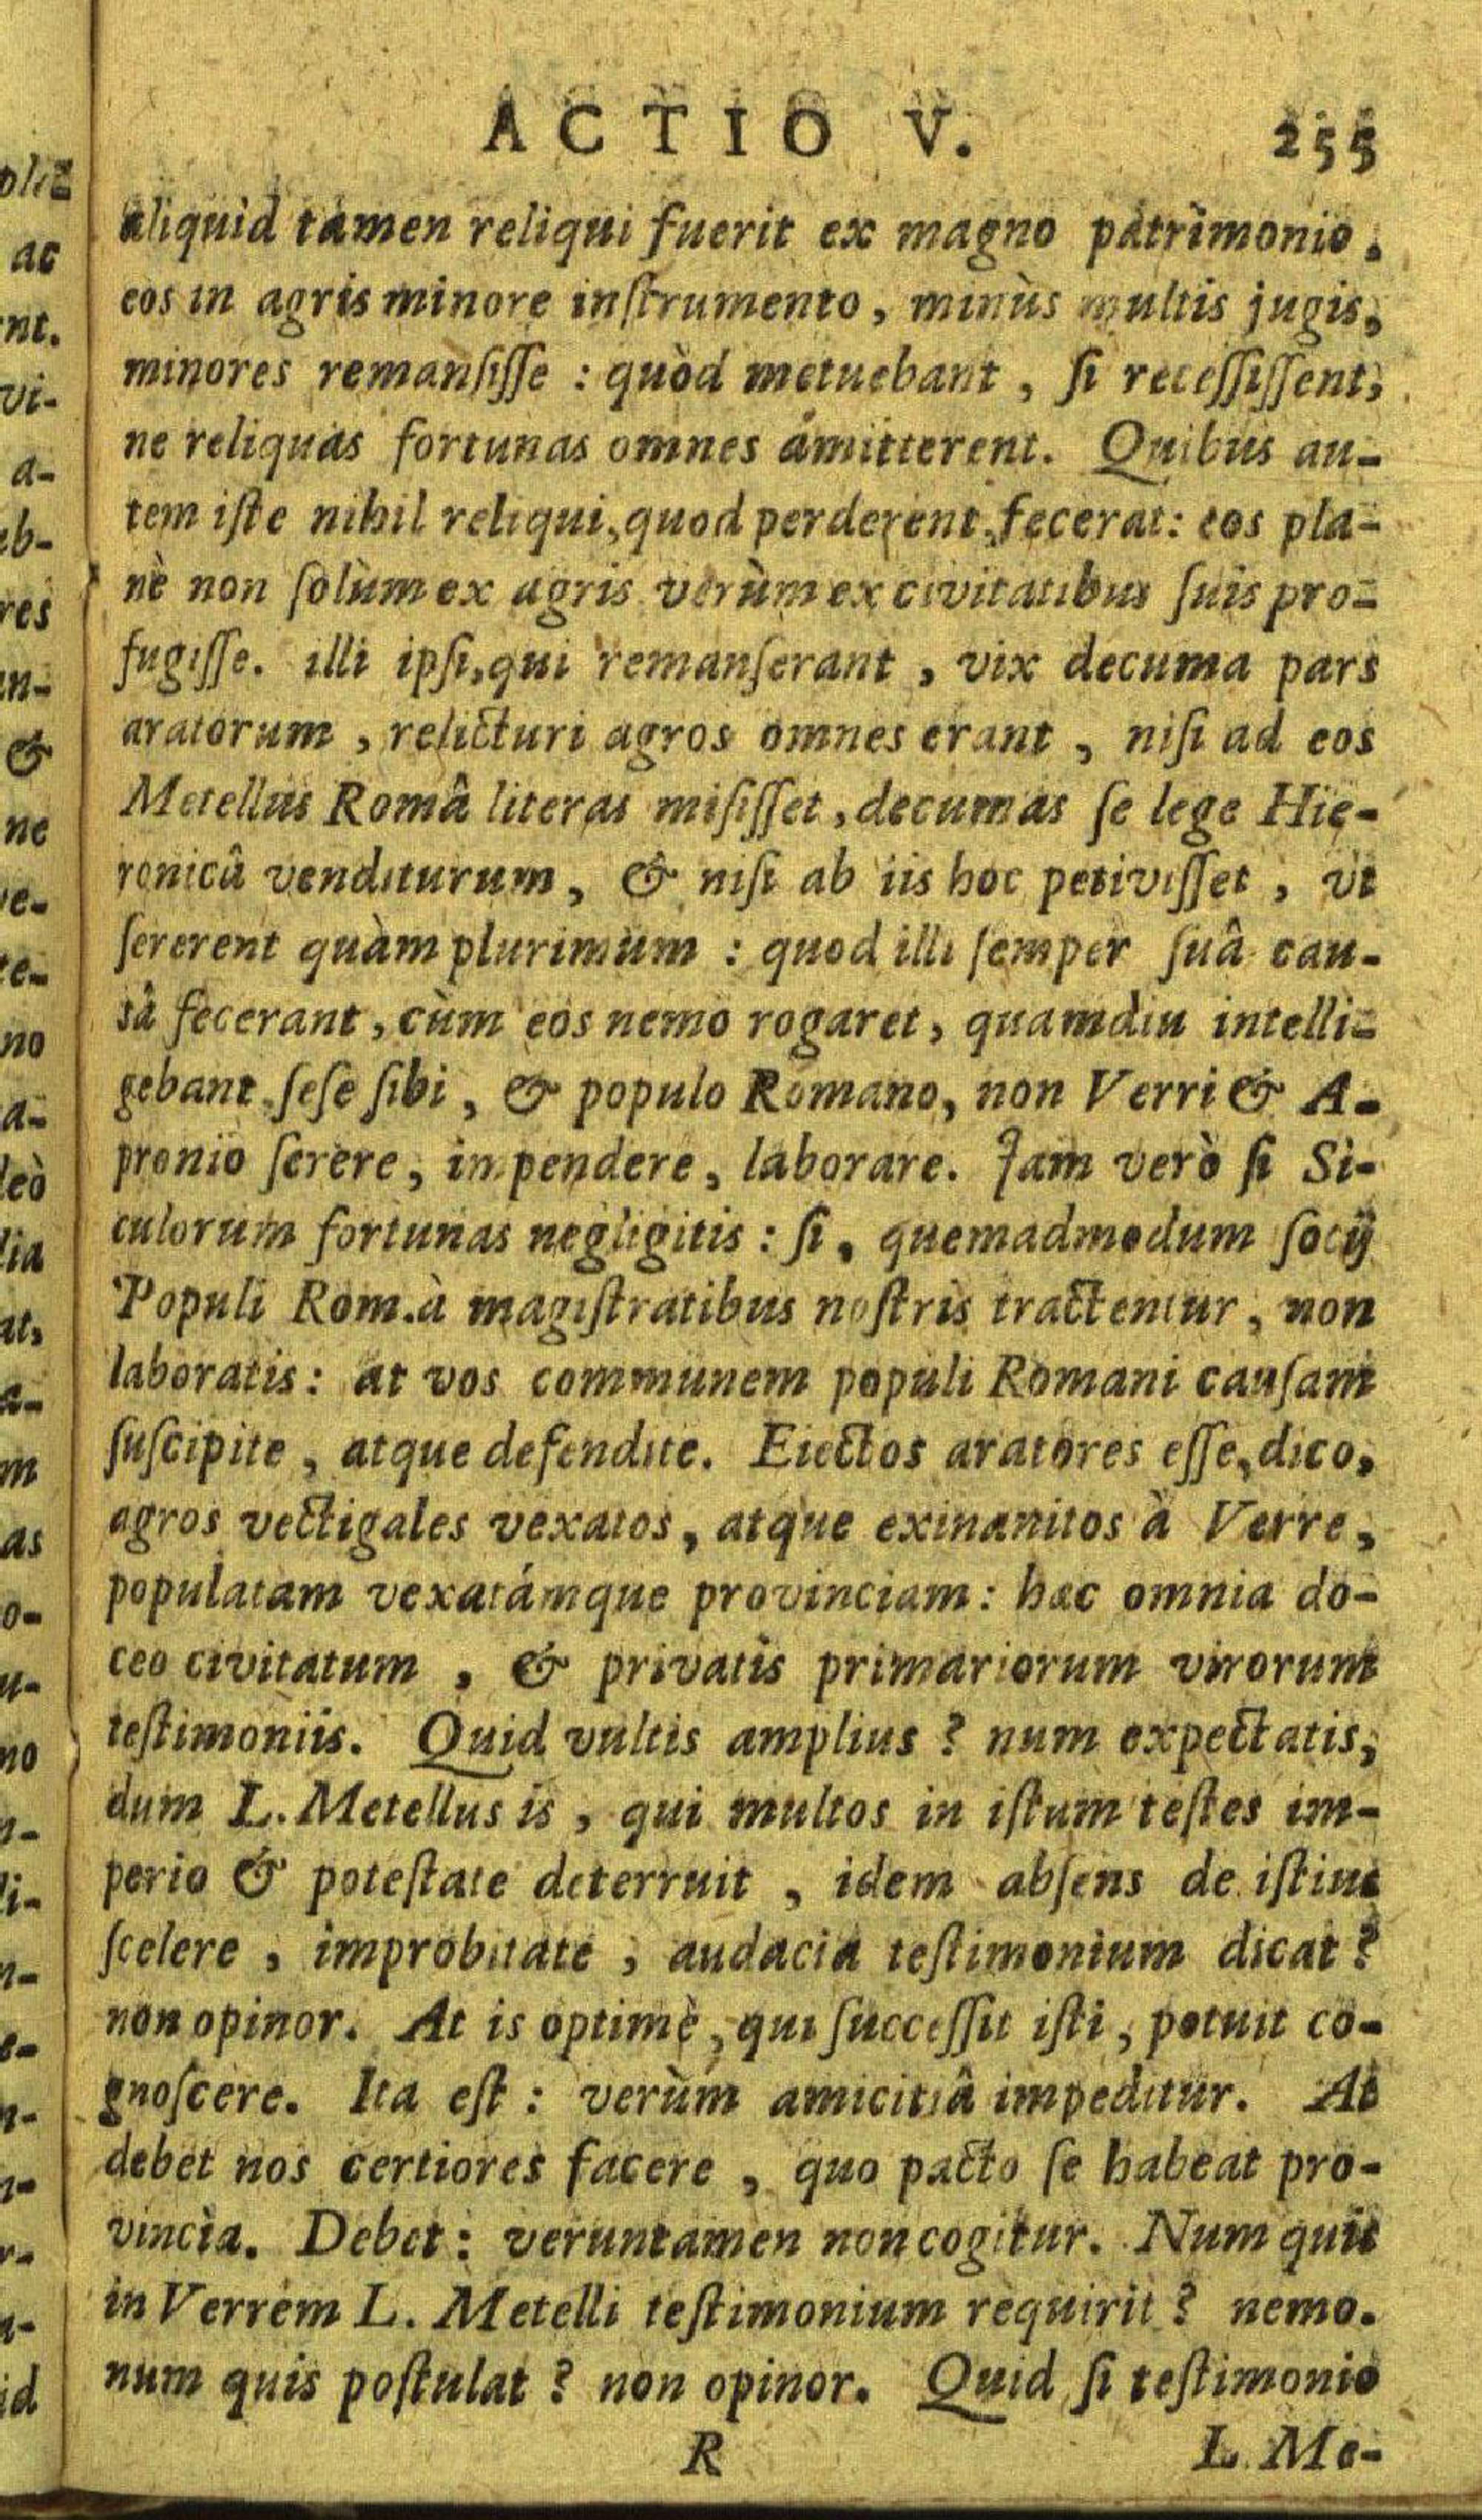 ACTIO V. 255
aliquid tamen reliqui fuerit ex magno patrimonio,
eos in agris minore inſtrumento, minùs multis jugis,
minores remanſiſſe : quòd metuebant, ſi receſſiſſent,
ne reliquas fortunas omnes amitterent. Quibus au-
tem iſte nihil reliqui, quod perderent, fecerat: eos pla-
nè non ſolùm ex agris verùm ex civitatibus ſuis pro-
fugiſſe. illi ipſi, qui remanſerant, vix decuma pars
aratorum, relicturi agros omnes erant, niſi ad eos
Metellus Româ literas miſiſſet, decumas ſe lege Hie-
ronicâ venditurum, & niſi ab iis hoc petiviſſet, vt
ſererent quàm plurimum : quod illi ſemper ſuâ cau-
sâ fecerant, cùm eos nemo rogaret, quamdiu intelli-
gebant ſeſe ſibi, & populo Romano, non Verri & A-
pronio ſerere, impendere, laborare. Jam verò ſi Si-
culorum fortunas negligitis : ſi, quemadmodum ſocij
Populi Rom. à magiſtratibus noſtris tractentur, non
laboratis: at vos communem populi Romani cauſam
ſuſcipite, atque defendite. Eiectos aratores eſſe, dico,
agros vectigales vexatos, atque exinanitos à Verre,
populatam vexatámque provinciam: hæc omnia do-
ceo civitatum, & privatis primariorum virorum
teſtimoniis. Quid vultis amplius ? num expectatis,
dum L. Metellus is, qui multos in iſtum teſtes im-
perio & poteſtate deterruit, idem abſens de iſtius
ſcelere, improbitate, audacia teſtimonium dicat ?
non opinor. At is optimè, qui ſucceſſit iſti, potuit co-
gnoſcere. Ita eſt : verùm amicitiâ impeditur. At
debet nos certiores facere, quo pacto ſe habeat pro-
vincia. Debet : veruntamen non cogitur. Num quis
in Verrem L. Metelli teſtimonium requirit ? nemo.
num quis poſtulat ? non opinor. Quid ſi teſtimonio
R L. Me-